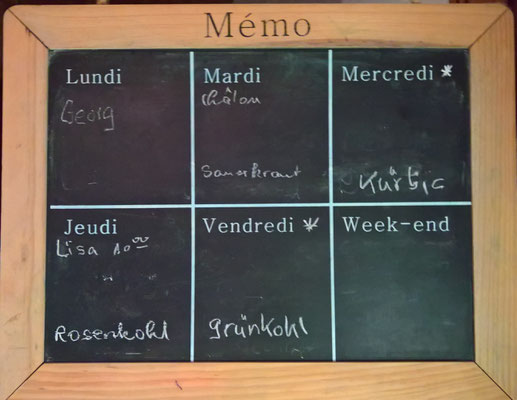 Mémo
Lundi
Georg
Mardi
Châlon
Sauerkraut
Mercredi *
Kürbis
Jeudi
Lisa 10 00
Rosenkohl
Vendredi *
Grünkohl
Week-end